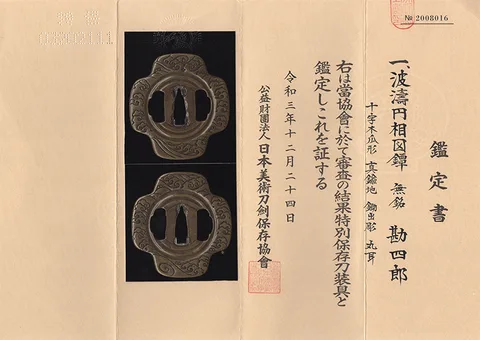 № 2008016
鑑定書
一、波濤円相図鐔 無銘 勘四郎
十字木瓜形 真鍮地 鋤出彫 丸耳
右は當協會に於て審査の結果特別保存刀装具と
鑑定しこれを証する
令和三年十二月二十四日
公益財團法人 日本美術刀劍保存協會